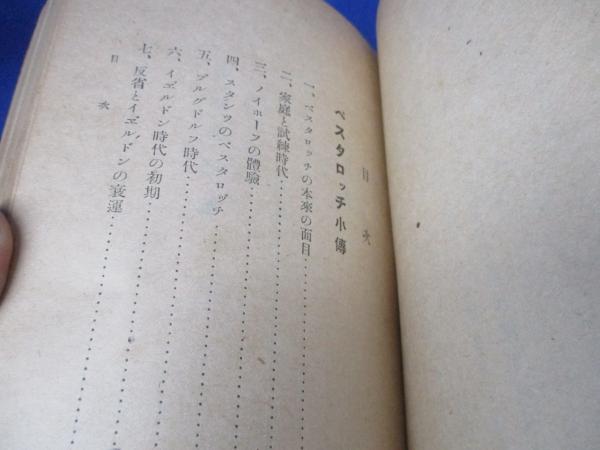 目次
ペスタロッチ小傳
一、ペスタロッチの本來の面目
二、家庭と試練時代
三、ノイホーフの體驗
四、スタンツのペスタロッチ
五、ブルグドルフ時代
六、イヹルドン時代の初期
七、反省とイヹルドンの衰運
目次